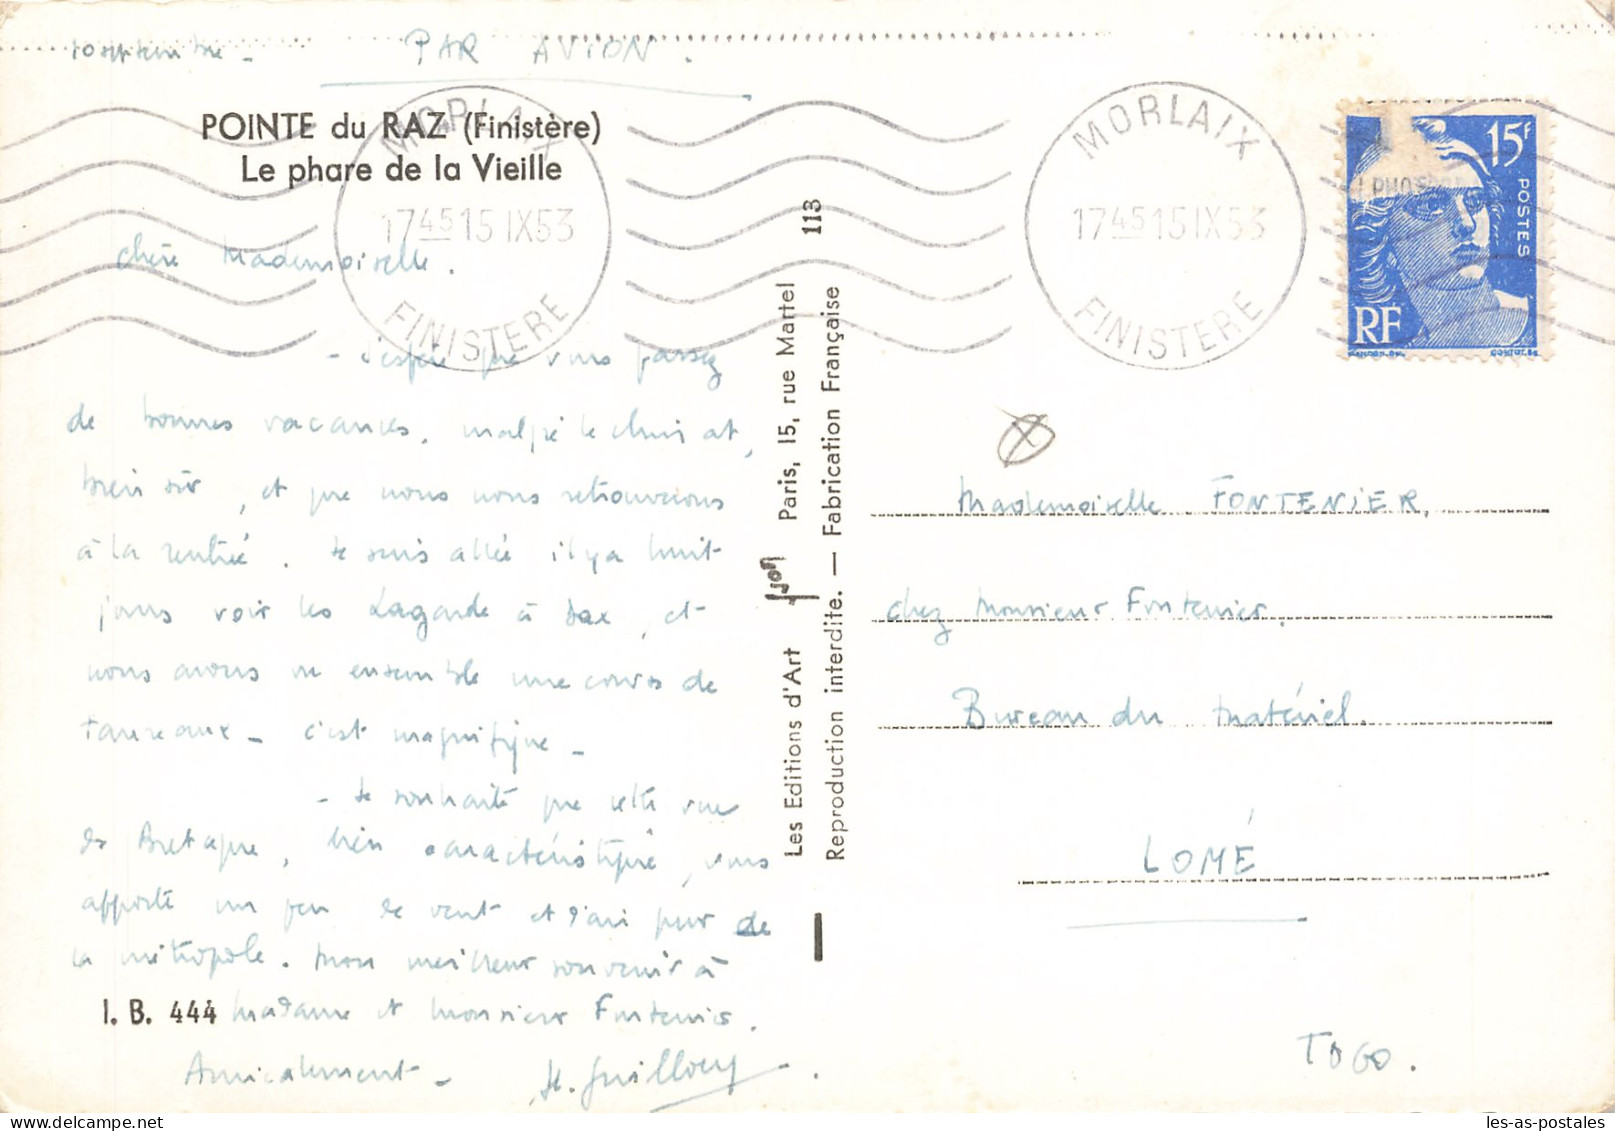 10 septembre - PAR AVION.
POINTE du RAZ (Finistère)
Le phare de la Vieille
MORLAIX
17 45 15 IX 53
FINISTERE
MORLAIX
17 45 15 IX 53
FINISTERE
15F
POSTES
RF
chère Mademoiselle.
- J'espère que vous passez
de bonnes vacances, malgré le climat,
bien sûr, et que nous nous retrouverons
à la rentrée. Je suis allée il y a huit
jours voir les Lagarde à Dax, et
nous avons vu ensemble une course de
taureaux - c'est magnifique -
- Je souhaite que cette vue
de Bretagne, bien caractéristique, vous
apporte un peu de vent et d'air pur de
la métropole. Mon meilleur souvenir à
I. B. 444 Madame et Monsieur Fontenier.
Amicalement - H. Guillou
Les Editions d'Art Yvon Paris, 15, rue Martel 113
Reproduction interdite. — Fabrication Française
Mademoiselle FONTENIER,
chez Monsieur Fontenier,
Bureau du Matériel.
LOMÉ
TOGO.
les-as-postales